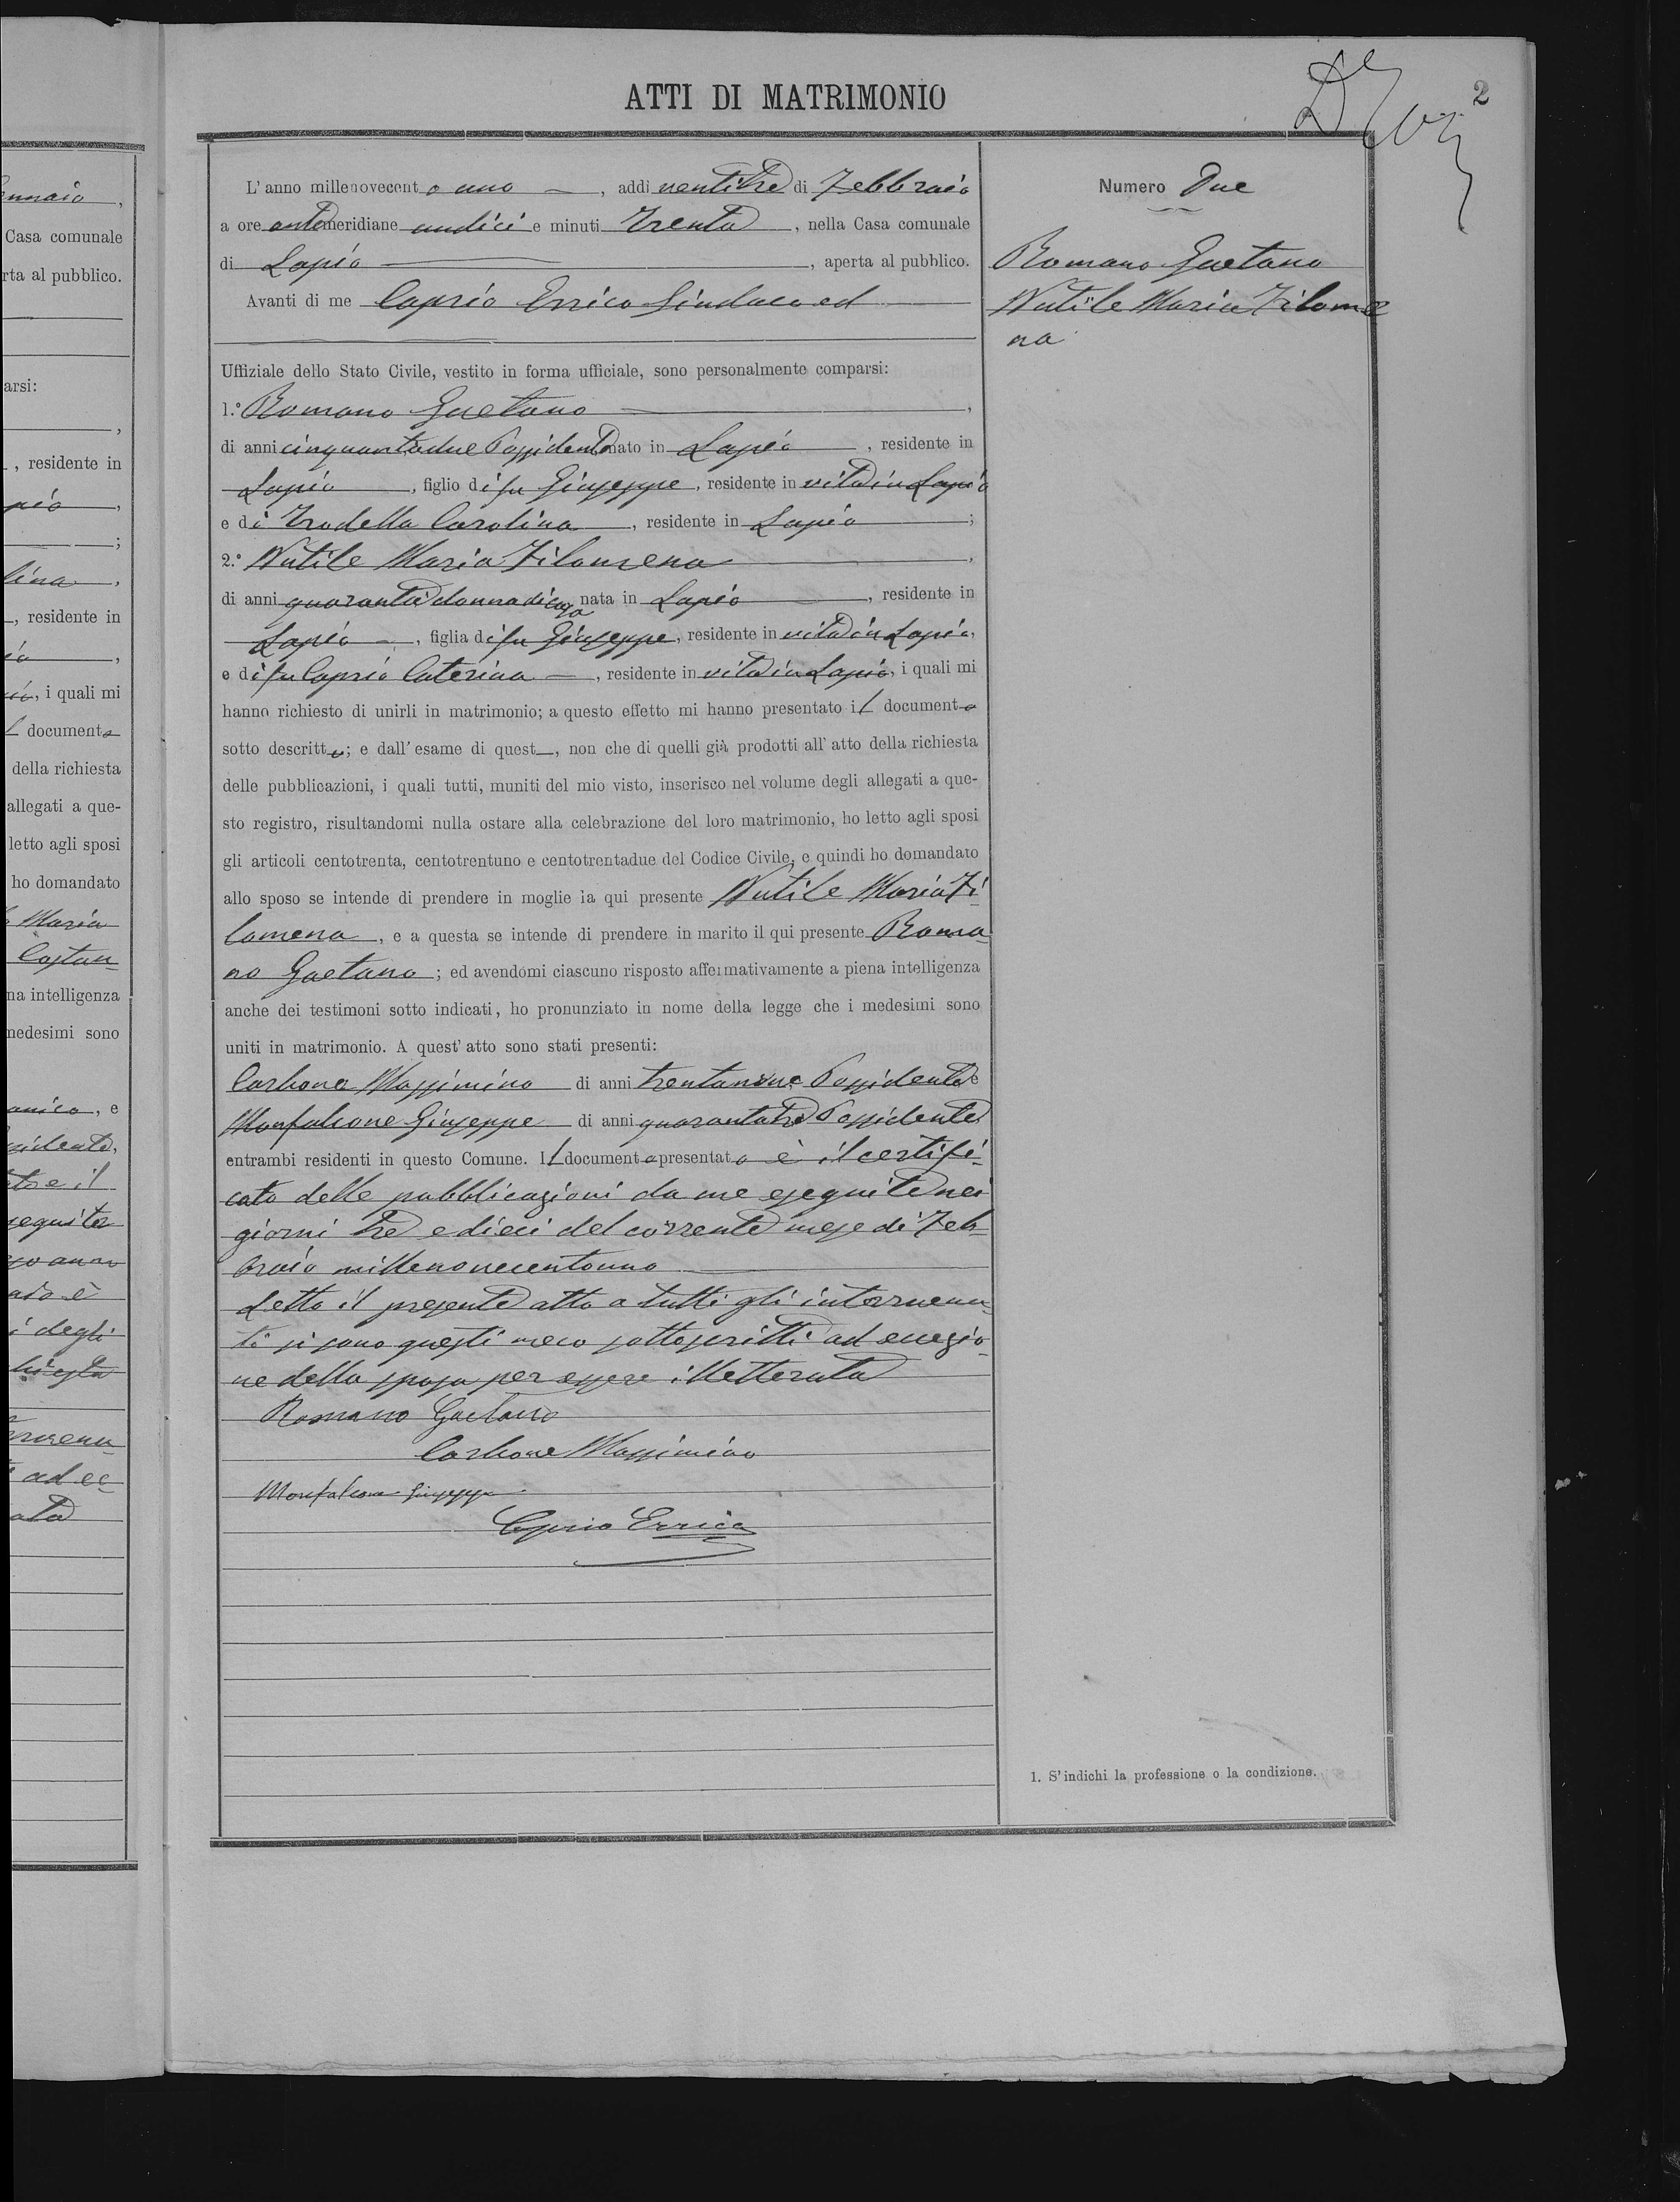 ATTI DI MATRIMONIO
2
ennaio,
Casa comunale
rta al pubblico.
arsi:
, residente in
pio,
;
lina,
, residente in
io,
i quali mi
l documento
della richiesta
allegati a que-
letto agli sposi
ho domandato
Maria
Costan-
na intelligenza
medesimi sono
, e
sidente,
il
seguite
degli
ad ec-
L'anno millenovecento uno, addì ventitre di Febbraio
a ore antemeridiane undici e minuti trenta, nella Casa comunale
di Lapio, aperta al pubblico.
Avanti di me Caprio Errico Sindaco ed
Uffiziale dello Stato Civile, vestito in forma ufficiale, sono personalmente comparsi:
1.° Romano Gaetano,
di anni cinquantadue Possidente nato in Lapio, residente in
Lapio, figlio di fu Giuseppe, residente in vita in Lapio
e di Trodella Carolina, residente in Lapio;
2.° Nutile Maria Filomena,
di anni quaranta donna di casa nata in Lapio, residente in
Lapio, figlia di fu Giuseppe, residente in vita in Lapio,
e di fu Caprio Caterina, residente in vita in Lapio, i quali mi
hanno richiesto di unirli in matrimonio; a questo effetto mi hanno presentato il documento
sotto descritto; e dall'esame di quest, non che di quelli già prodotti all'atto della richiesta
delle pubblicazioni, i quali tutti, muniti del mio visto, inserisco nel volume degli allegati a que-
sto registro, risultandomi nulla ostare alla celebrazione del loro matrimonio, ho letto agli sposi
gli articoli centotrenta, centotrentuno e centotrentadue del Codice Civile, e quindi ho domandato
allo sposo se intende di prendere in moglie la qui presente Nutile Maria Fi-
lomena, e a questa se intende di prendere in marito il qui presente Roma-
no Gaetano; ed avendomi ciascuno risposto affermativamente a piena intelligenza
anche dei testimoni sotto indicati, ho pronunziato in nome della legge che i medesimi sono
uniti in matrimonio. A quest'atto sono stati presenti:
Carbone Massimino di anni trentanove Possidente
Monfalcone Giuseppe di anni quarantatre Possidente
entrambi residenti in questo Comune. Il documento presentato è il certifi-
cato delle pubblicazioni da me eseguite nei
giorni tre e dieci del corrente mese di Feb-
braio millenovecentouno
Letto il presente atto a tutti gli intervenu-
ti si sono questi meco sottoscritti ad eccezio-
ne della sposa per essere illetterata
Romano Gaetano
Carbone Massimino
Monfalcone Giuseppe
Caprio Errico
Numero Due
Romano Gaetano
Nutile Maria Filome
na
1. S'indichi la professione o la condizione.